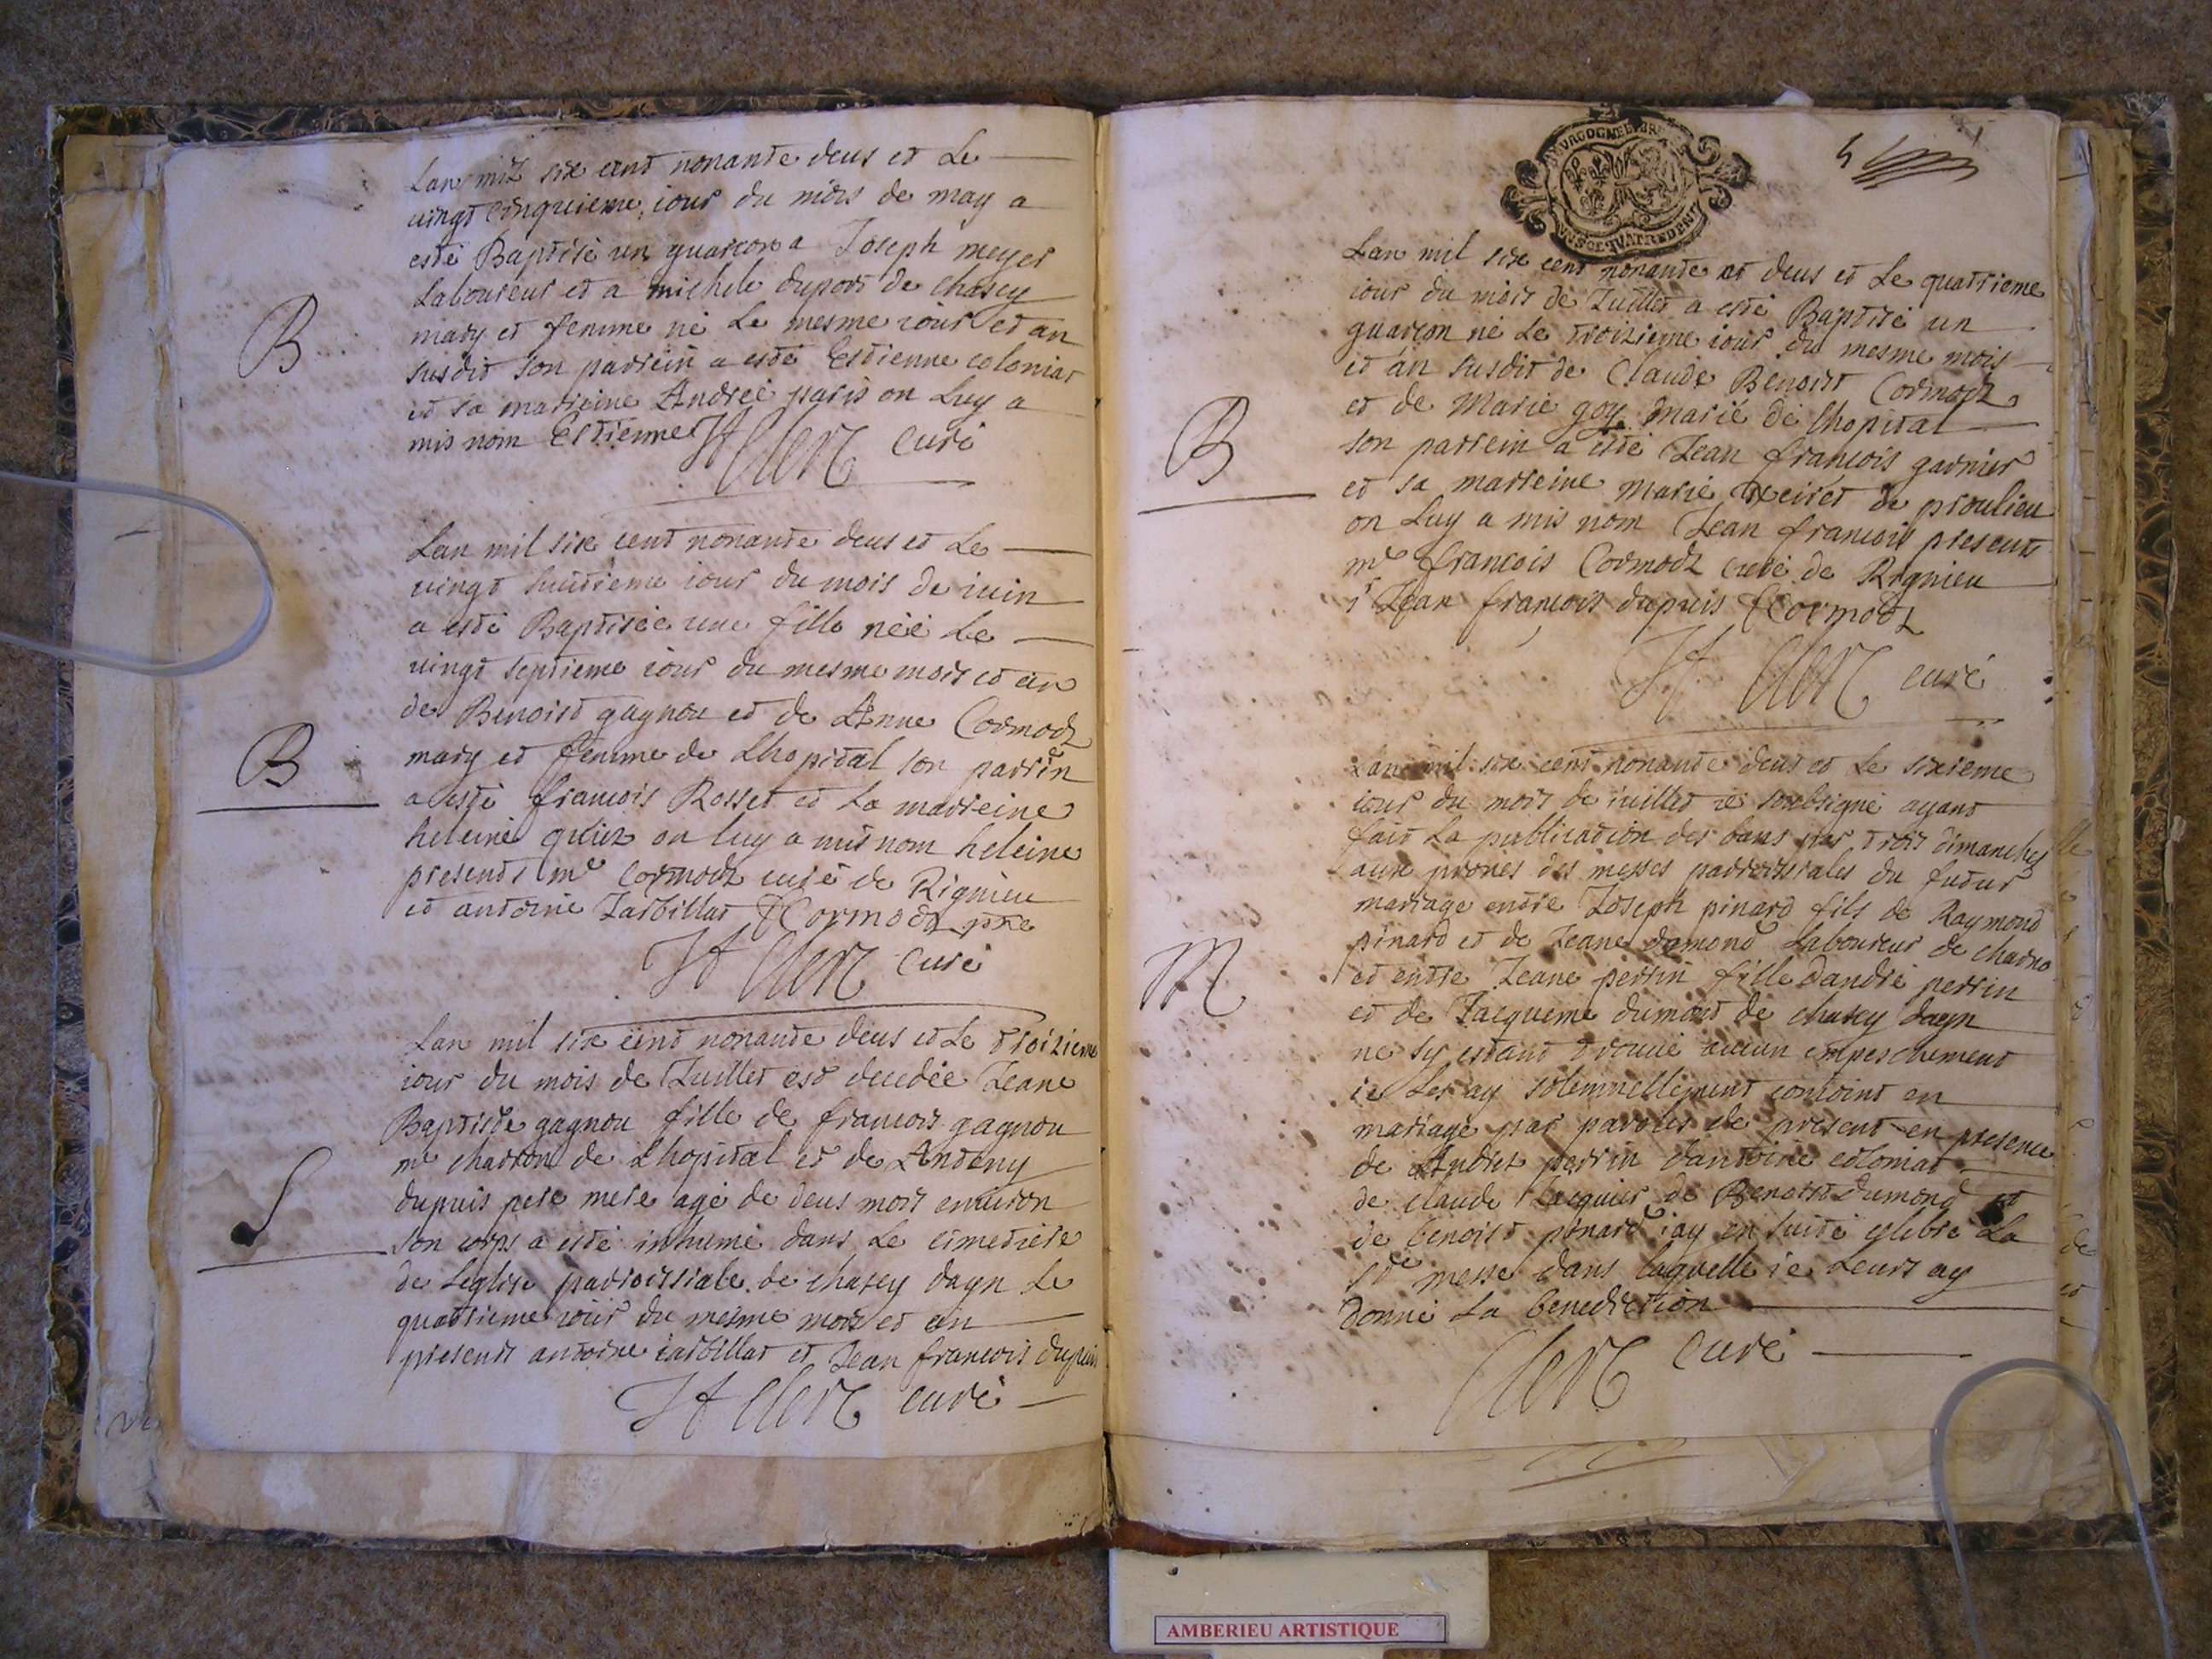 Lan mil six cent nonante deus et Le
vingt cinquieme iour du mois de may a
esté Baptisé un guarcon a Joseph meyer
Laboureur et a michele dupont de chasey
mary et femme né Le mesme iour et an
susdit son parrein a esté Estienne coloniat
et sa marreine Andreé paris on Luy a
mis nom Estienne
Clerc curé
B
Lan mil six cent nonante deus et Le
vingt huitieme iour du mois de iuin
a esté Baptisée une fille néé Le
vingt septieme iour du mesme mois et an
de Benoist gagnou et de Anne Cormodz
mary et femme de Lhopital son parrin
a esté francois Rosset et La marreine
heleine on luy a mis nom heleine
presents me Cormodz curé de Rignieu
et antoine Jarbillat Cormodz pre
Clerc Curé
B
Lan mil six cent nonante deus et Le troizieme
iour du mois de Juillet est decedée Jeane
Baptiste gagnou fille de francois gagnou
me charron de Lhopital et de Anteny
dupuis pere mere agé de deus mois enuiron
son corps a esté inhumé dans Le cimetiere
de Leglise parroissiale de chasey dayn Le
quatrieme iour du mesme mois et an
presents antoine iarbillat et Jean francois dupuis
Clerc curé
S
BOURGOGNE BRE
QUATRE DEN
Lan mil six cent nonante et deus et Le quatrieme
iour du mois de Juillet a esté Baptisé un
guarçon né Le troizieme iour du mesme mois
et an susdit de Claude Benoist Cormodz
et de Marie goy marié de Lhopital
son parrein a esté Jean françois garnier
et sa marreine marie de proulieu
on Luy a mis nom Jean francois presents
me francois Cormodz curé de Rignieu
sr Jean francois dupuis Cormodz
Clerc curé
B
Lan mil six cent nonante deus et Le sixieme
iour du mois de iuillet ie soubsigné ayant
fait La publication des bans par trois dimanches
aux prones des messes parroissiales du futur
mariage entre Joseph pinard fils de Raymond
pinard et de Jeane dumond Laboureur de charno
et entre Jeane perrin fille dandré perrin
et de Jacqueme dumond de chasey dayn
ne sy estant trouué aucun empeschement
ie Les ay solemnellement conioint en
mariage par paroles de present en presence
de Andre perrin dantoine coloniat
de claude Jacquier de Benoist dumond et
de benoist pinard iay en suite celebré La
ste messe dans laquelle ie Leurs ay
donné La benediction
Clerc curé
M
AMBERIEU ARTISTIQUE